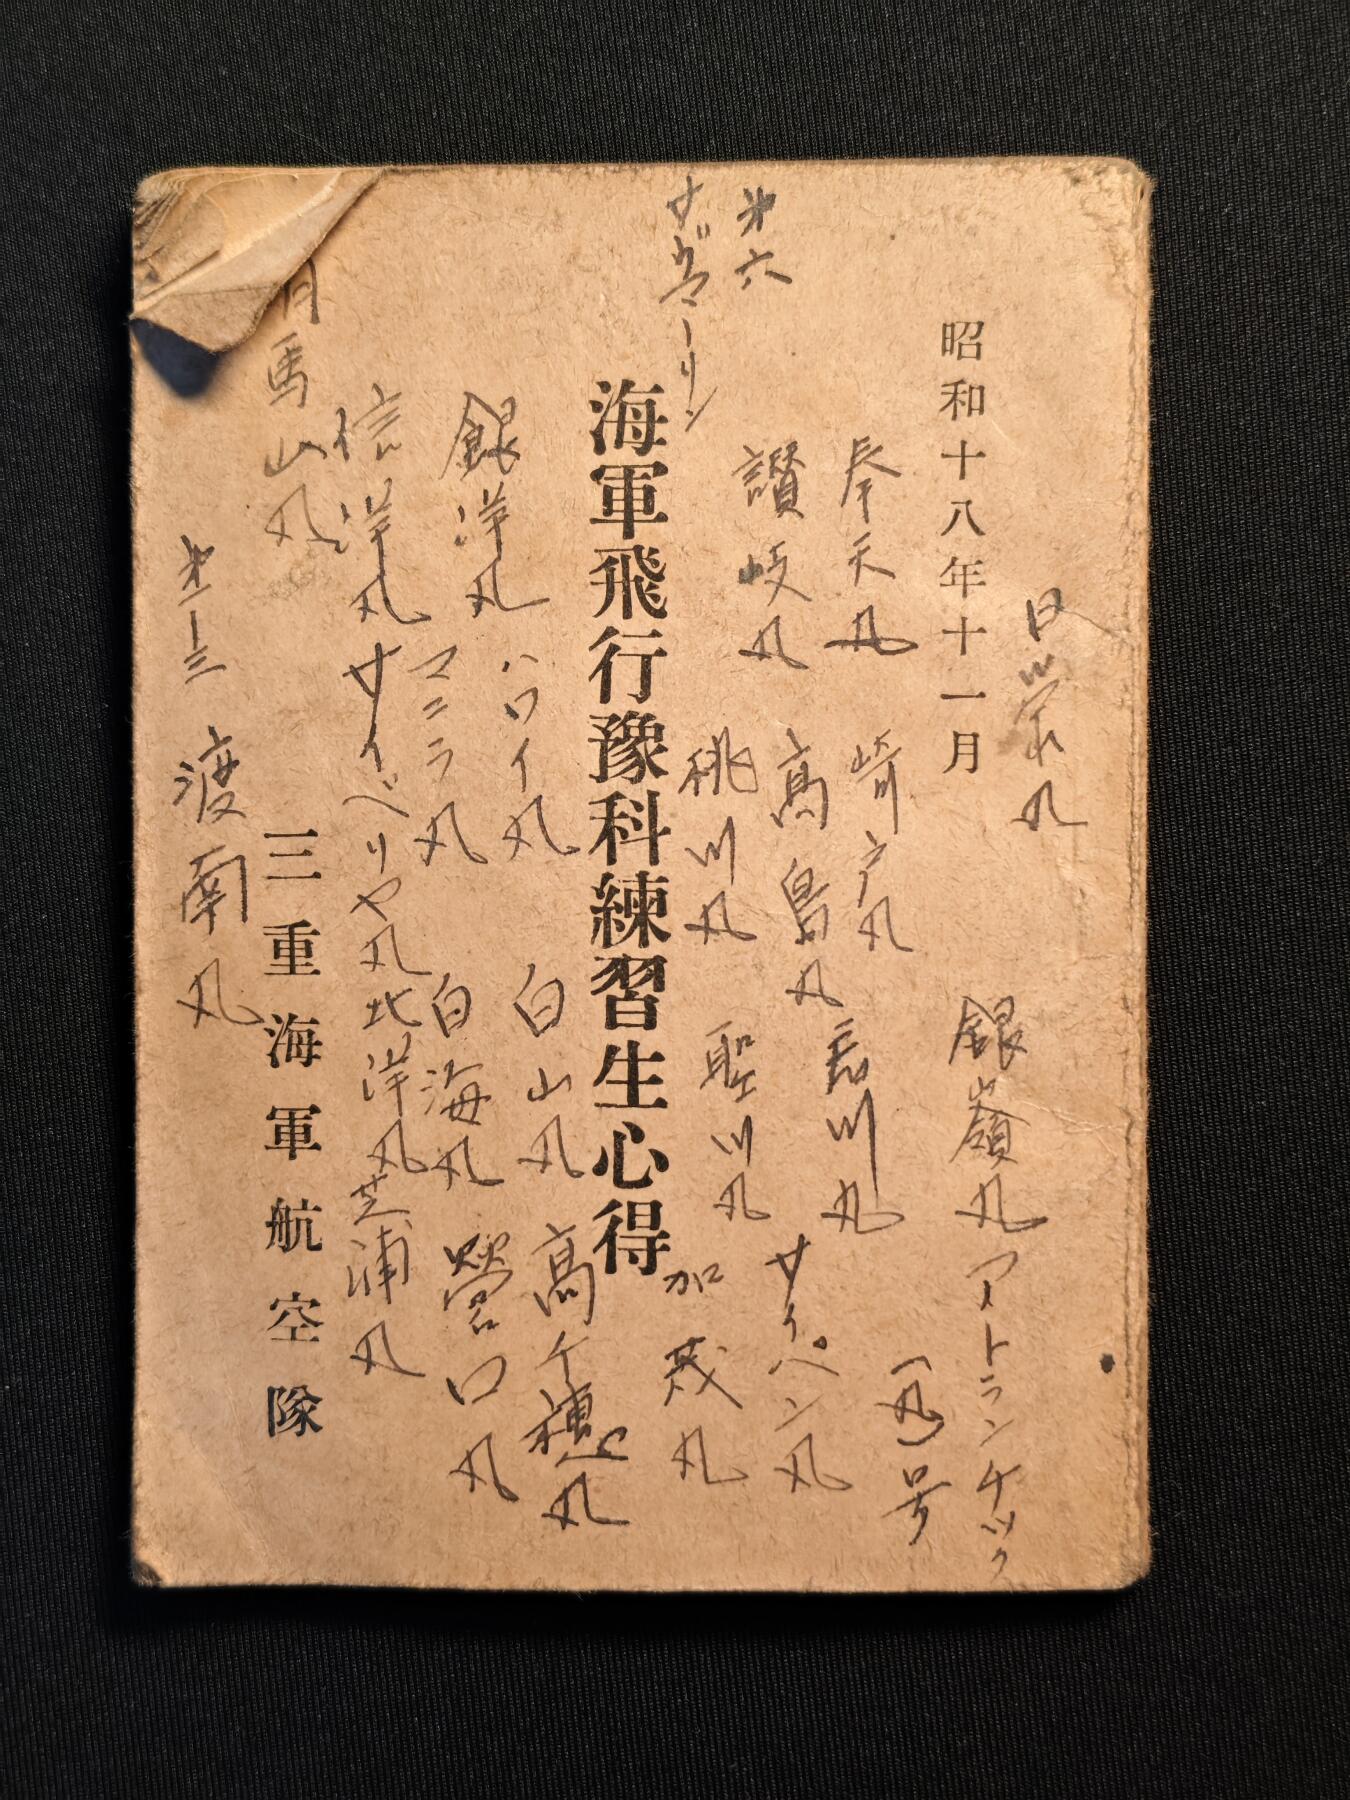 日栄丸
銀嶺丸
アートランチック
(丸)号
昭和十八年十一月
奉天丸
崎戸丸
君川丸
サイペン丸
第六
讃岐丸
高島丸
聖川丸
桃川丸
加茂丸
サヴマーリン
海軍飛行豫科練習生心得
銀洋丸
ハワイ丸
白山丸
高ケ穂丸
マニラ丸
白海丸
營口丸
信洋丸
サイベリヤ丸
北洋丸
芝浦丸
馬山丸
三重海軍航空隊
第一三
渡南丸